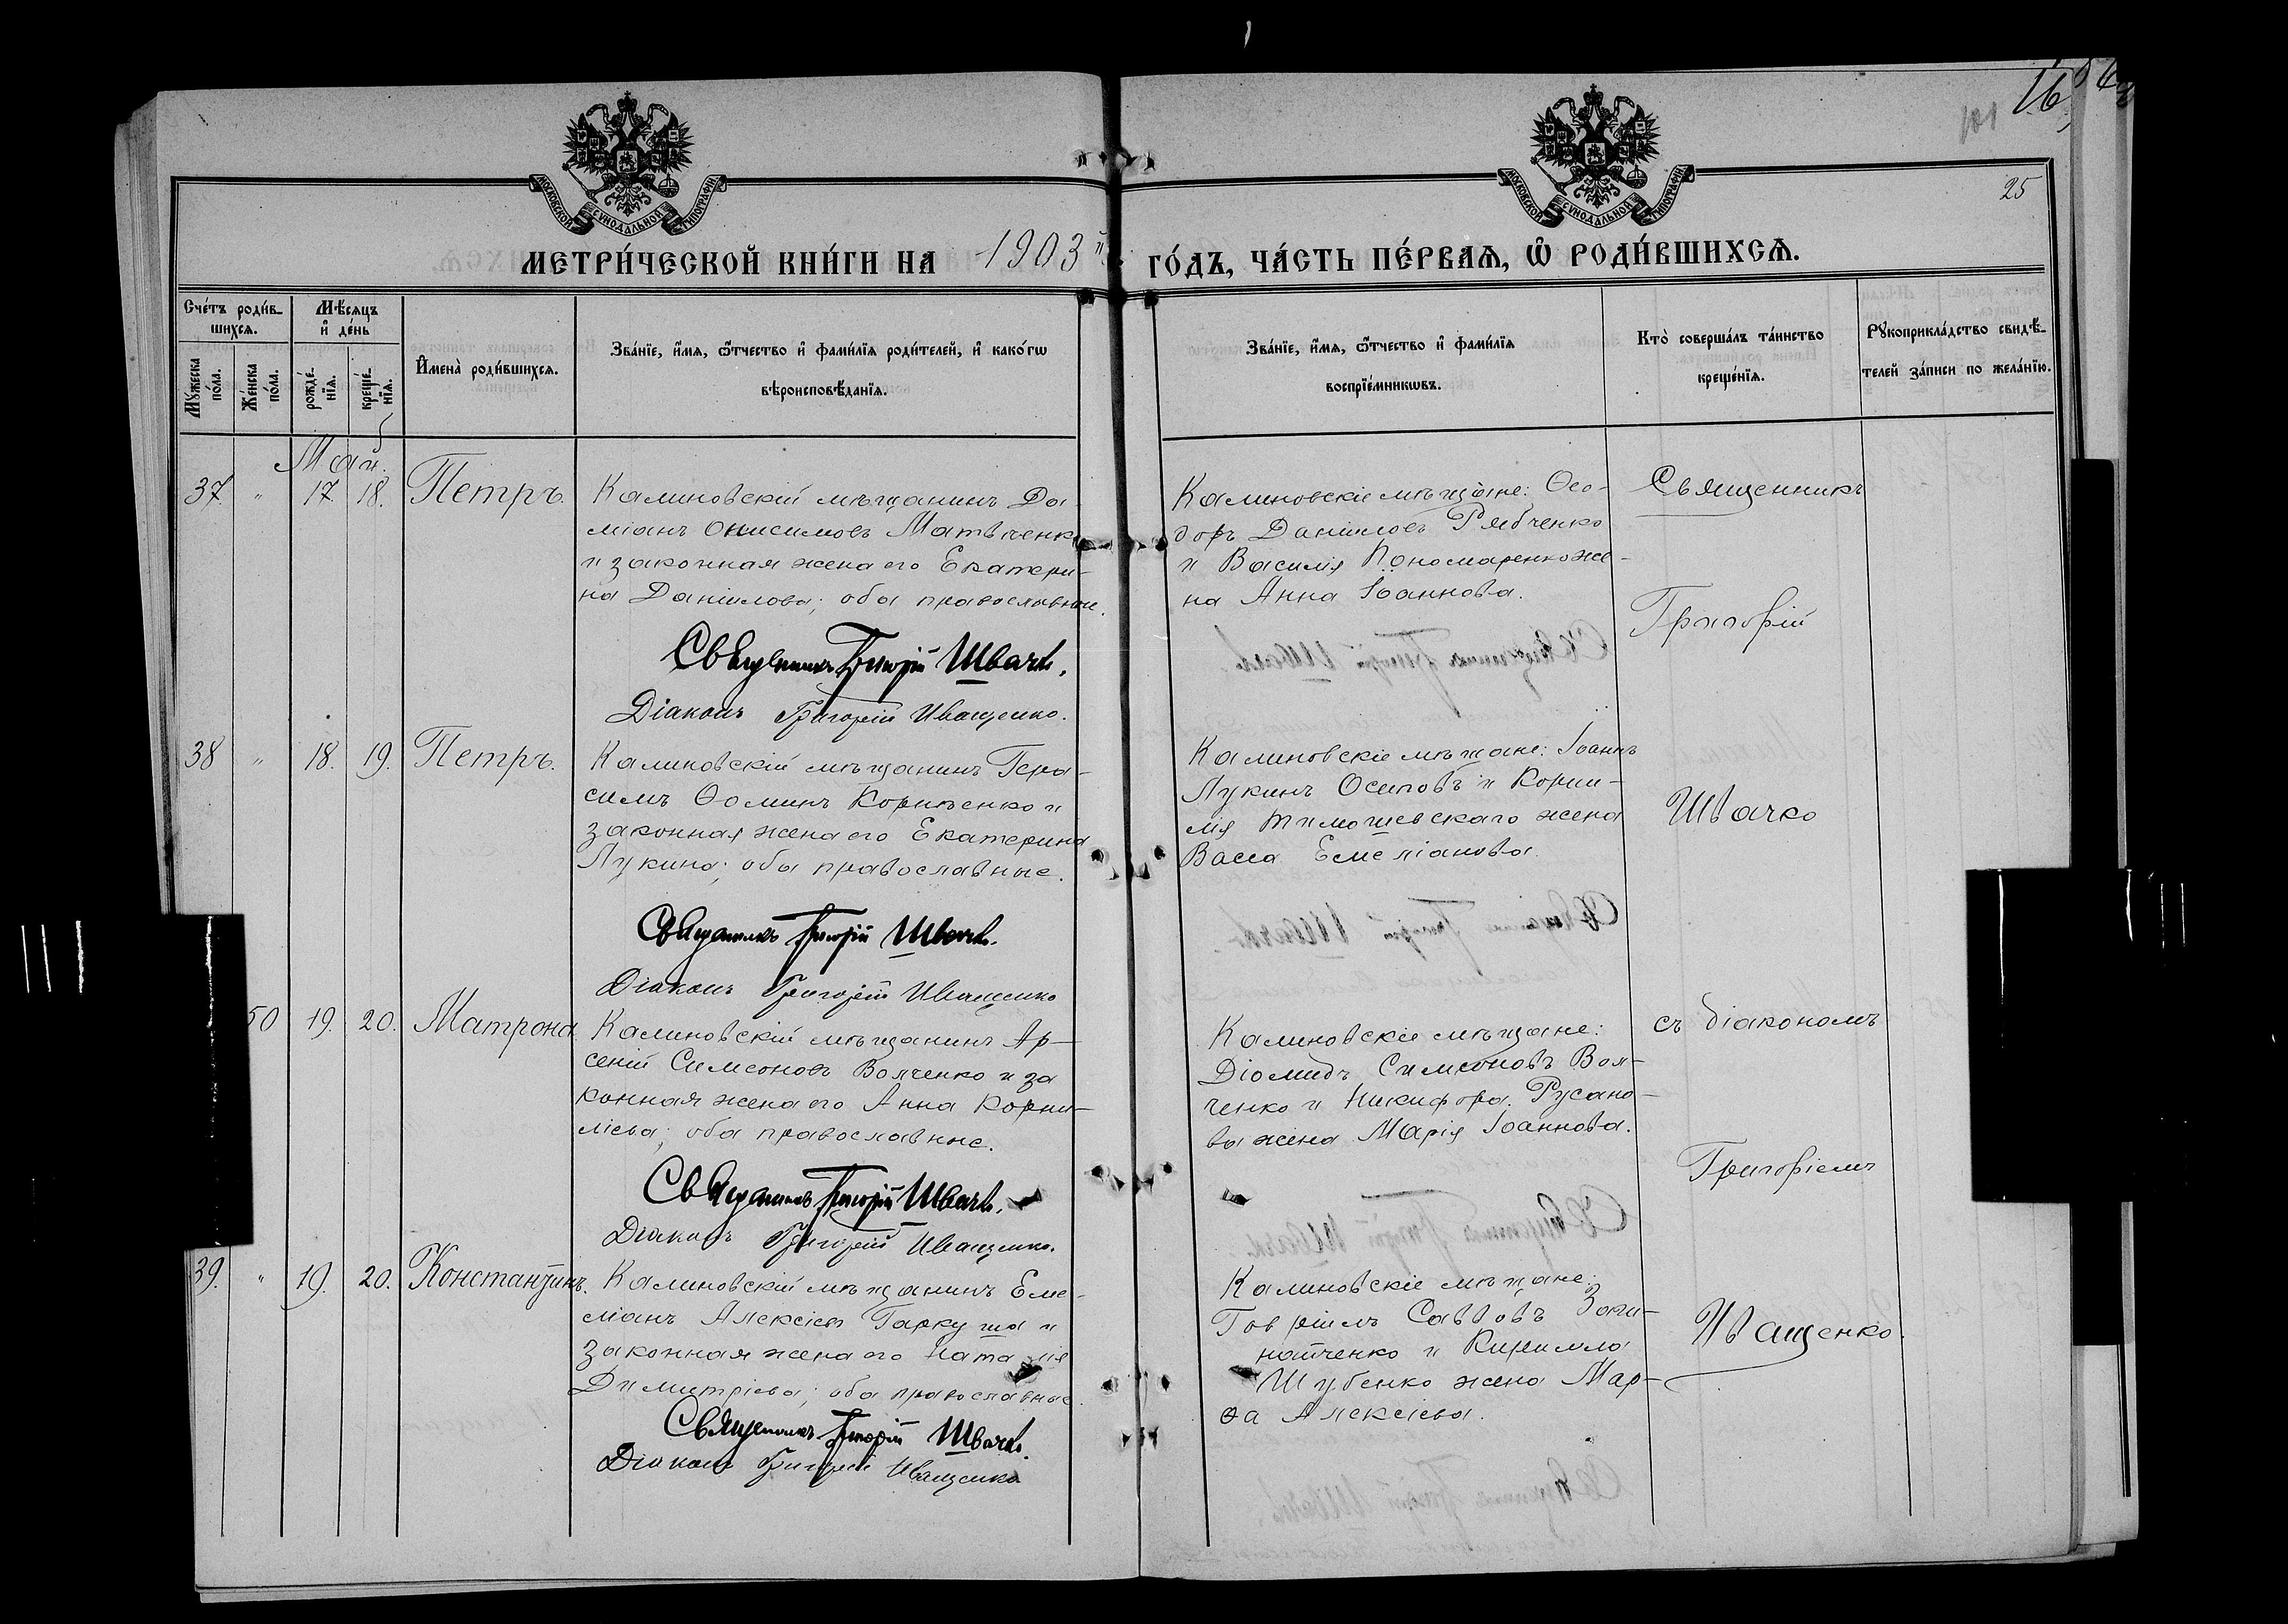 16
101
25
МОСКОВСКОЙ СѴНОДАЛЬНОЙ ТИПОГРАФІИ
МОСКОВСКОЙ СѴНОДАЛЬНОЙ ТИПОГРАФІИ
МЕТРИ́ЧЕСКОЙ КНИ́ГИ НА 1903 й ГО́ДЪ, ЧА́СТЬ ПЕ́РВАѦ, Ѽ РОДИ́ВШИХСѦ.
Сче́тъ роди́в-
шихсѧ.
Мꙋ́жеска по́ла.
Же́нска по́ла.
Мѣ́сяцъ
и҆ де́нь
рожде́-
нїѧ.
креще́-
нїѧ.
И҆мена̀ роди́вшихсѧ.
Зва́нїе, и҆́мѧ, ѻ҆́тчество и҆ фами́лїѧ роди́телей, и҆ како́гѡ
вѣроисповѣ́данїѧ.
Зва́нїе, и҆́мѧ, ѻ҆́тчество и҆ фами́лїѧ
воспрїе́мникѡвъ.
Кто̀ соверша́лъ та́инство
креще́нїѧ.
Рꙋкоприкла́дство свидѣ́-
телей за́писи по жела́нїю.
Май.
37. " 17 18. Петръ.
Калиновскій мѣщанинъ Да-
міанъ Онисимовъ Матвіенко
и законная жена его Екатери-
на Даніилова; оба православные.
Священникъ Григорій Швачко.
Діаконъ Григорій Иващенко.
Калиновскіе мѣщане: Ѳео-
доръ Даніиловъ Рябченко
и Василія Пономаренко же-
на Анна Іоаннова.
38 " 18. 19. Петръ.
Калиновскій мѣщанинъ Гера-
симъ Ѳоминъ Корніенко и
законная жена его Екатерина
Лукина; оба православные.
Священникъ Григорій Швачко.
Діаконъ Григорій Иващенко
Калиновскіе мѣщане: Іоаннъ
Лукинъ Осиповъ и Корни-
лія Тимошевскаго жена
Васса Емеліанова.
50 19. 20. Матрона
Калиновскій мѣщанинъ Ар-
сеній Симеоновъ Волченко и за
конная жена его Анна Корни-
ліева; оба православные.
Священникъ Григорій Швачко.
Діаконъ Григорій Иващенко.
Калиновскіе мѣщане:
Діомидъ Симеоновъ Вол-
ченко и Никифора Русано-
ва жена Марія Іоаннова.
39. " 19. 20. Константинъ.
Калиновскій мѣщанинъ Еме-
ліанъ Алексіевъ Гаркуша и
законная жена его Наталія
Димитріева; оба православные.
Священникъ Григорій Швачко.
Діаконъ Григорій Иващенко
Калиновскіе мѣщане:
Гавріилъ Саввовъ
и Кирилла
Шубенко жена Мар-
ѳа Алексіева.
Священникъ
Григорій
Швачко
съ діакономъ
Григоріемъ
Иващенко.